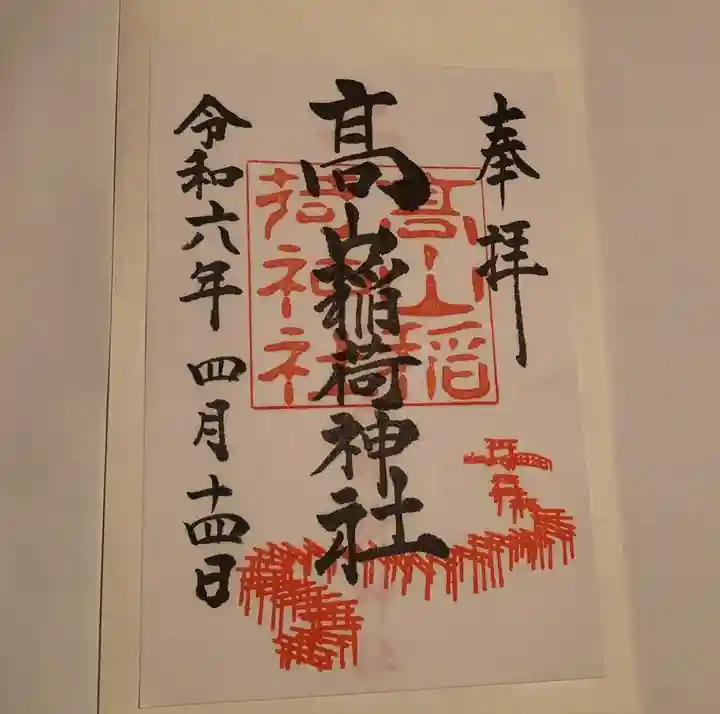 奉拝
髙山稲荷神社
髙山稲
荷神社
令和六年 四月十四日